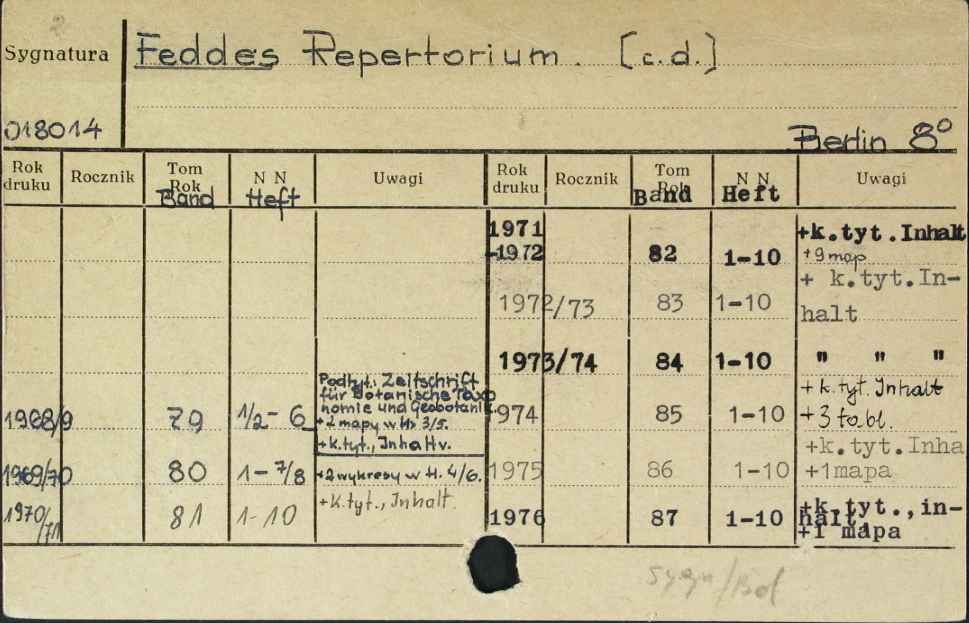 Sygnatura
Feddes Repertorium. [c.d.]
018014
Berlin 8°
Rok druku Rocznik Tom Rok Band N N Heft Uwagi
Rok druku Rocznik Tom Rok Band N N Heft Uwagi
Podtyt.: Zeitschrift
für Botanische Taxo
nomie und Geobotanik.
1968/9 79 1/2-6 +2 mapy w H. 3/5.
+k.tyt., Inhaltv.
1969/70 80 1-7/8 +2 wykresy w H. 4/6.
1970/71 81 1-10 +k.tyt., Inhalt.
1971
-1972 82 1-10 +k.tyt.Inhalt
+9 map
1972/73 83 1-10 + k.tyt.In-
halt
1973/74 84 1-10 " " "
974 85 1-10 + k.tyt. Inhalt
+3 tabl.
1975 86 1-10 +k.tyt.Inha
+1mapa
1976 87 1-10 +k.tyt.,in-
halt,
+1 mapa
sygn/Bot